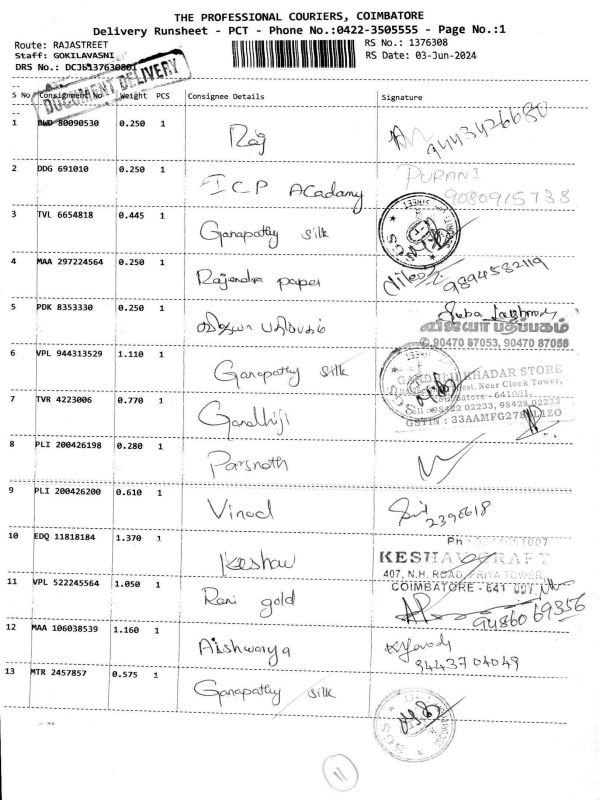 THE PROFESSIONAL COURIERS, COIMBATORE
Delivery Runsheet - PCT - Phone No.:0422-3505555 - Page No.:1
Route: RAJASTREET RS No.: 1376308
Staff: GOKILAVASNI RS Date: 03-Jun-2024
DRS No.: DCJb137630801
DOCUMENT DELIVERY
S No Consignment No Weight PCS Consignee Details Signature
1 BWD 80090530 0.250 1 Raj 9443426680
2 DDG 691010 0.250 1 ICP ACadamy PURANI
9080915738
3 TVL 6654818 0.445 1 Ganapathy silk
4 MAA 297224564 0.250 1 Rajendra paper 9894582119
5 PDK 8353330 0.250 1 விஜயா பதிப்பகம்
விஜயா பதிப்பகம்
90470 87053, 90470 87058
6 VPL 944313529 1.110 1 Ganapathy silk
KHADAR STORE
Street, Near Clock Tower,
Coimbatore - 641001.
7 TVR 4223006 0.770 1 Gandhiji
Cell : 98422 02233, 98428 02233
8 PLI 200426198 0.280 1 Parsnath
9 PLI 200426200 0.610 1 Vinod
10 EDQ 11818184 1.370 1 Keshav
KESHAV CRAFT
407, N.H. ROAD, PRIYA TOWER,
COIMBATORE - 641 001.
11 VPL 522245564 1.050 1 Rani gold 9486069356
12 MAA 106038539 1.160 1 Aishwarya
9443704049
13 MTR 2457857 0.575 1 Ganapathy silk
11